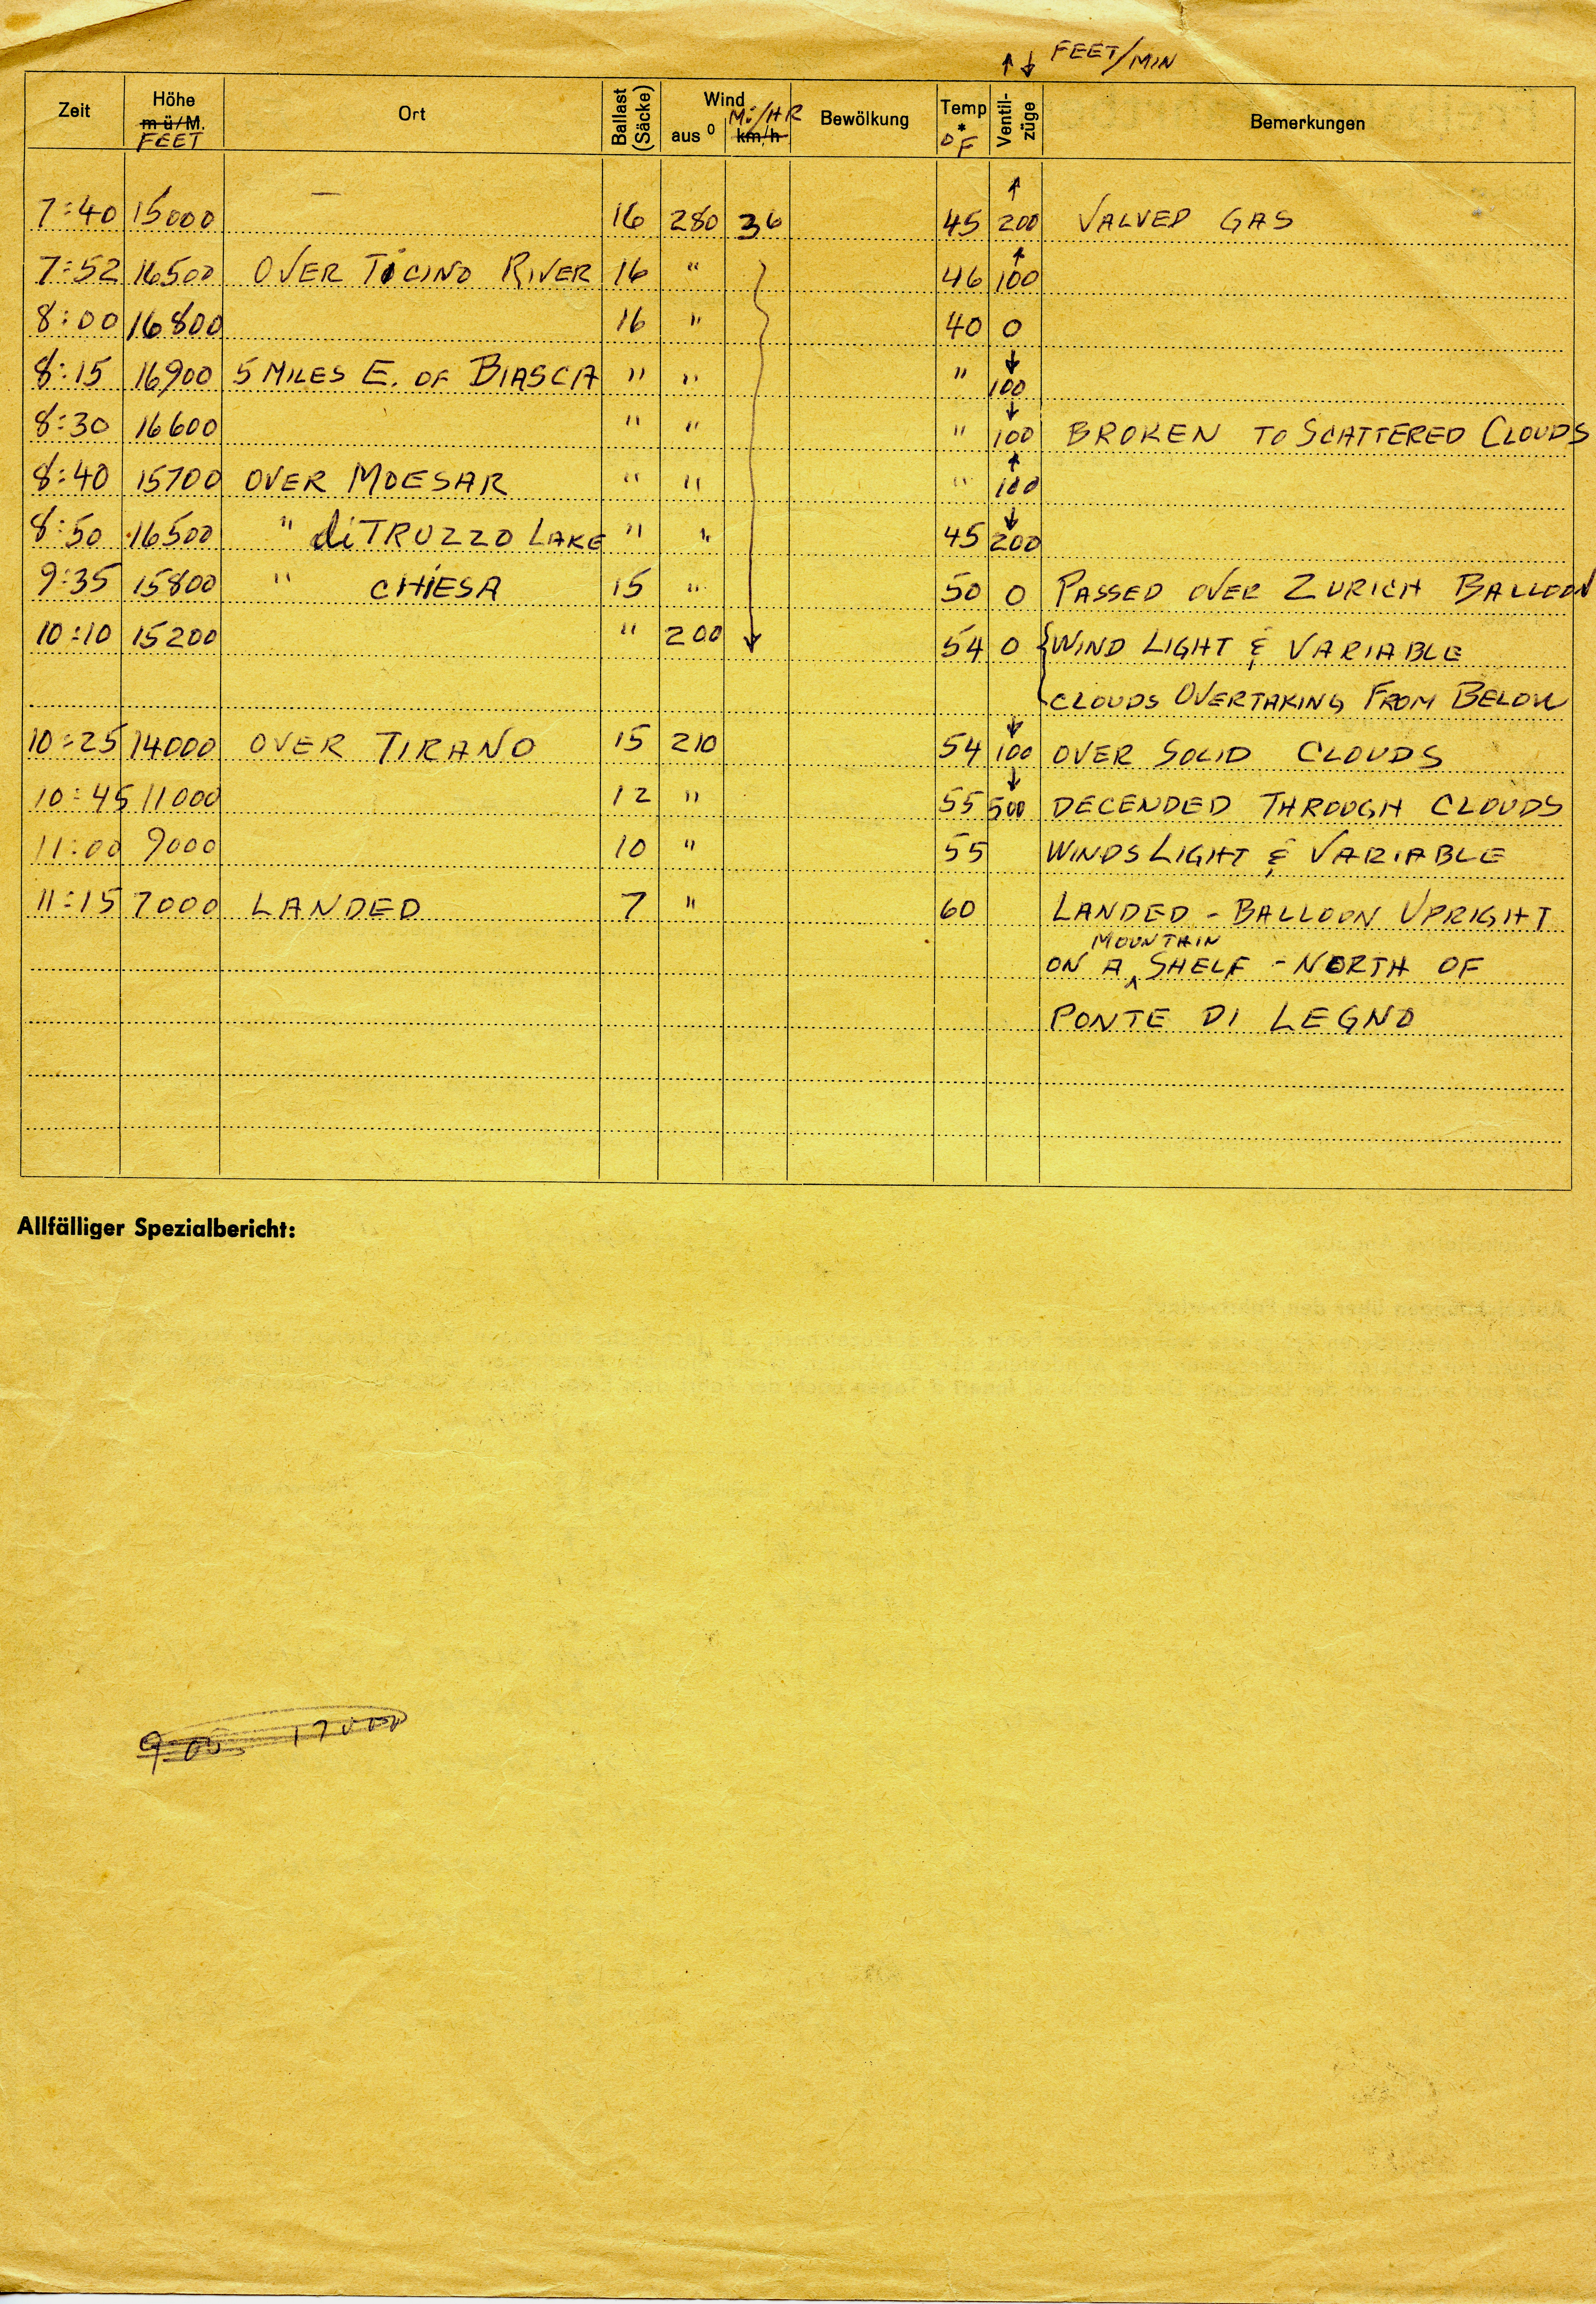 ↑ ↓ FEET/MIN
Zeit Höhe m ü/M. FEET Ort Ballast (Säcke) Wind aus ° km/h Mi/HR Bewölkung Temp ° °F Ventil-züge Bemerkungen
7:40 15000 — 16 280 36 45 ↑ 200 VALVED GAS
7:52 16500 OVER TICINO RIVER 16 " 46 ↑ 100
8:00 16800 16 " 40 0
8:15 16900 5 MILES E. OF BIASCA " " " ↓ 100
8:30 16600 " " " ↓ 100 BROKEN TO SCATTERED CLOUDS
8:40 15700 OVER MOESAR " " " ↑ 100
8:50 16500 " di TRUZZO LAKE " " 45 ↓ 200
9:35 15800 " CHIESA 15 " 50 0 PASSED OVER ZURICH BALLOON
10:10 15200 " 200 54 0 { WIND LIGHT & VARIABLE
CLOUDS OVERTAKING FROM BELOW
10:25 14000 OVER TIRANO 15 210 54 ↓ 100 OVER SOLID CLOUDS
10:45 11000 12 " 55 ↓ 500 DECENDED THROUGH CLOUDS
11:00 9000 10 " 55 WINDS LIGHT & VARIABLE
11:15 7000 LANDED 7 " 60 LANDED - BALLOON UPRIGHT
ON A MOUNTAIN SHELF - NORTH OF
PONTE DI LEGNO
Allfälliger Spezialbericht:
9 00 17000